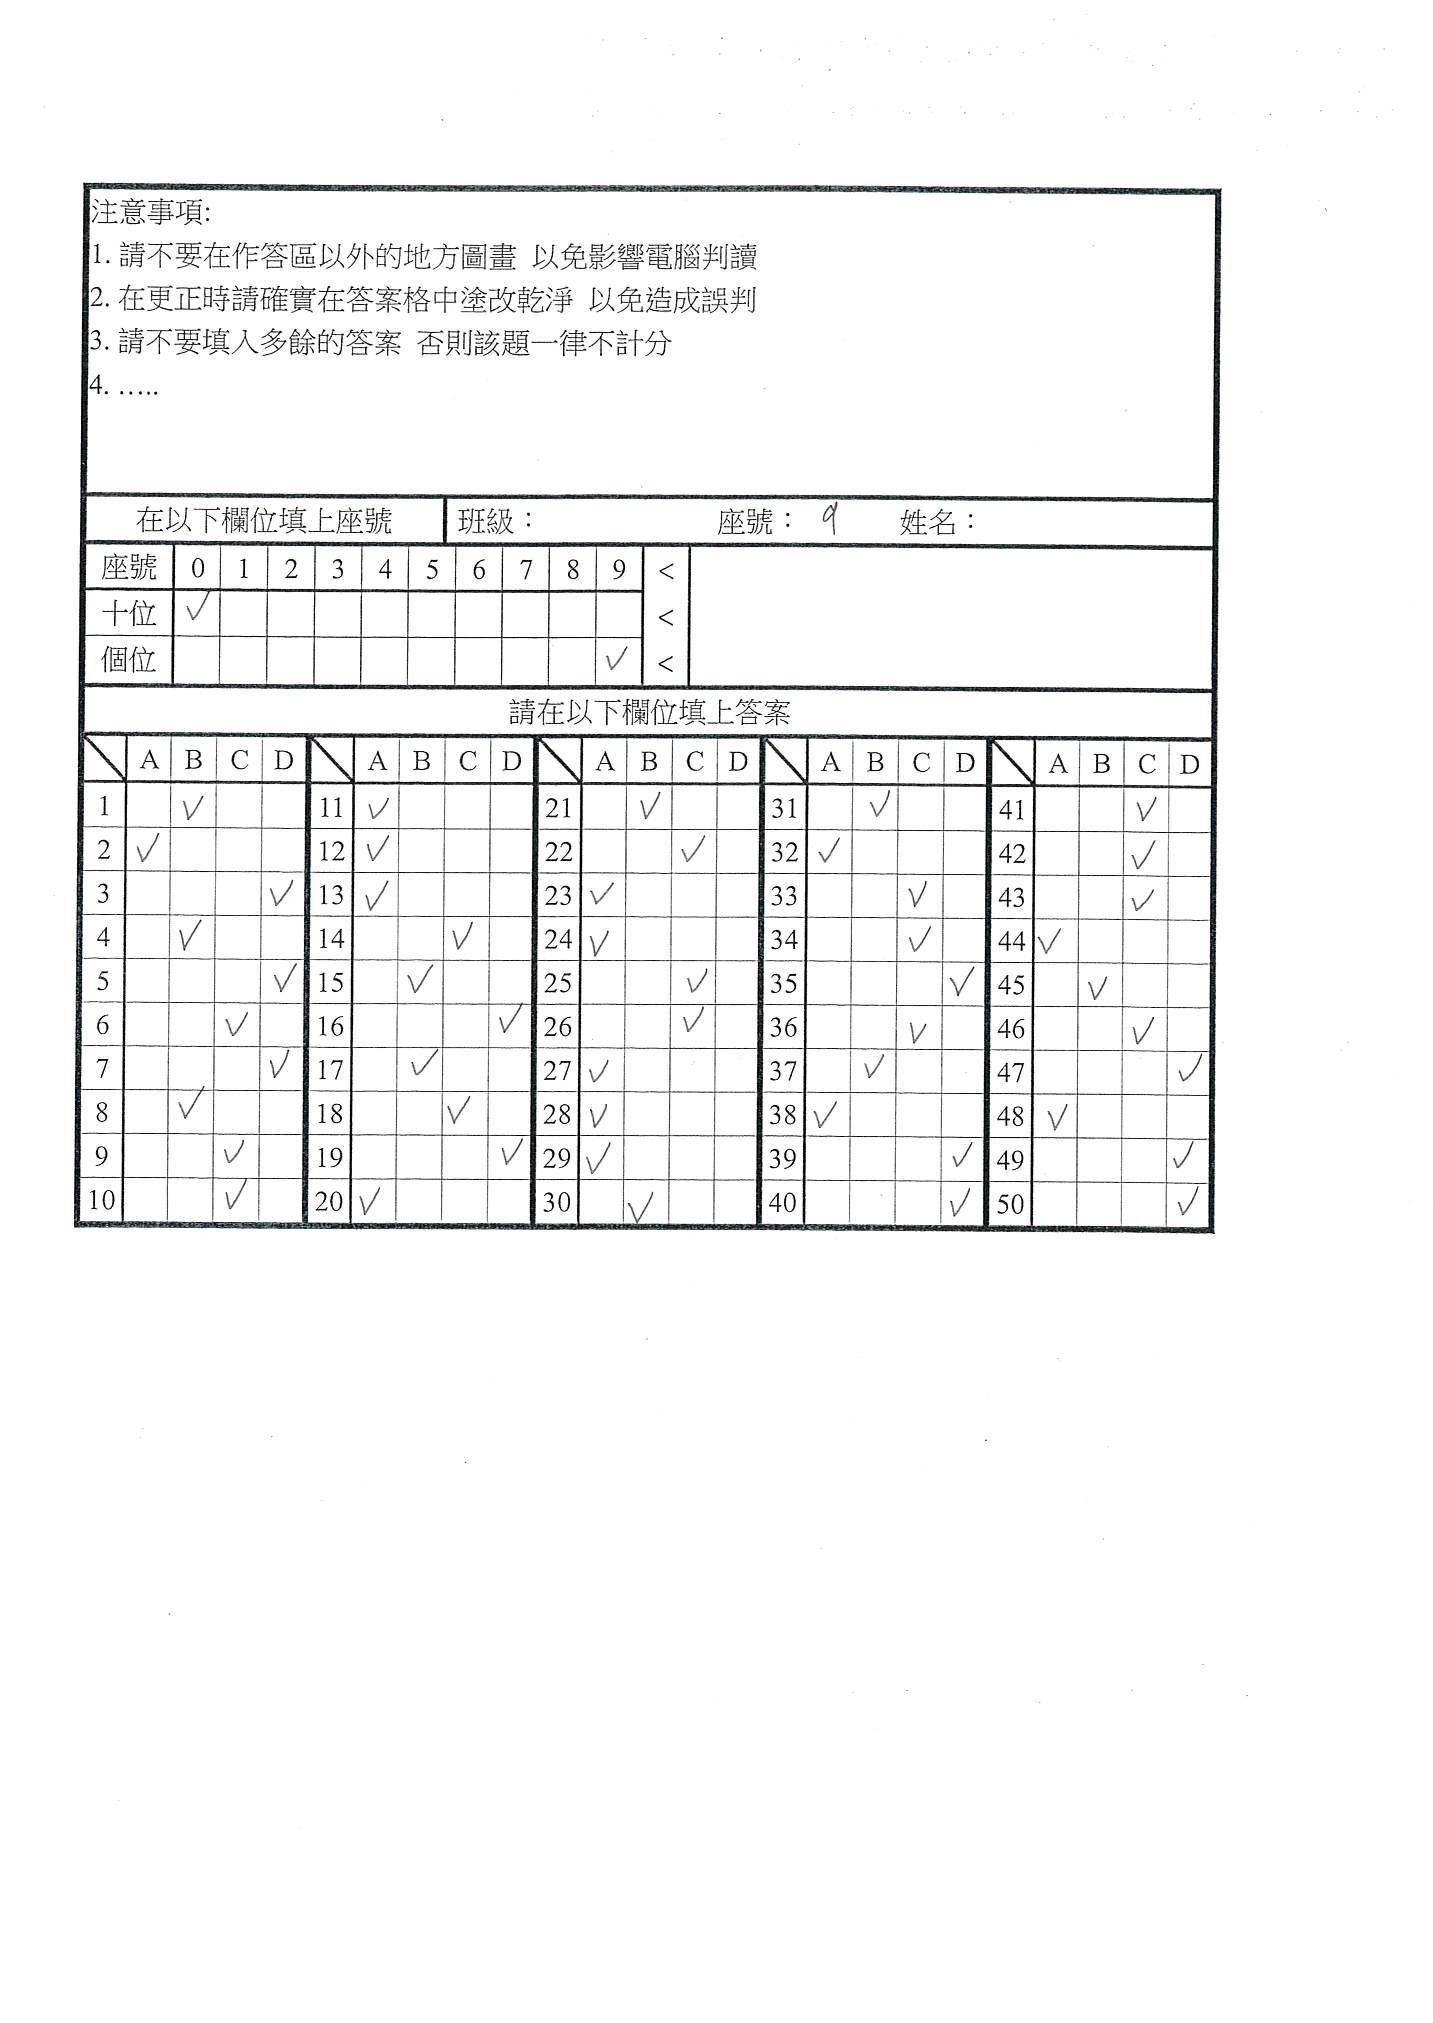 注意事項:
1. 請不要在作答區以外的地方圖畫 以免影響電腦判讀
2. 在更正時請確實在答案格中塗改乾淨 以免造成誤判
3. 請不要填入多餘的答案 否則該題一律不計分
4. …..
在以下欄位填上座號 班級： 座號： 9 姓名：
座號 0 1 2 3 4 5 6 7 8 9 <
十位 ✓ <
個位 ✓ <
請在以下欄位填上答案
A B C D A B C D A B C D A B C D A B C D
1 ✓ 11 ✓ 21 ✓ 31 ✓ 41 ✓
2 ✓ 12 ✓ 22 ✓ 32 ✓ 42 ✓
3 ✓ 13 ✓ 23 ✓ 33 ✓ 43 ✓
4 ✓ 14 ✓ 24 ✓ 34 ✓ 44 ✓
5 ✓ 15 ✓ 25 ✓ 35 ✓ 45 ✓
6 ✓ 16 ✓ 26 ✓ 36 ✓ 46 ✓
7 ✓ 17 ✓ 27 ✓ 37 ✓ 47 ✓
8 ✓ 18 ✓ 28 ✓ 38 ✓ 48 ✓
9 ✓ 19 ✓ 29 ✓ 39 ✓ 49 ✓
10 ✓ 20 ✓ 30 ✓ 40 ✓ 50 ✓